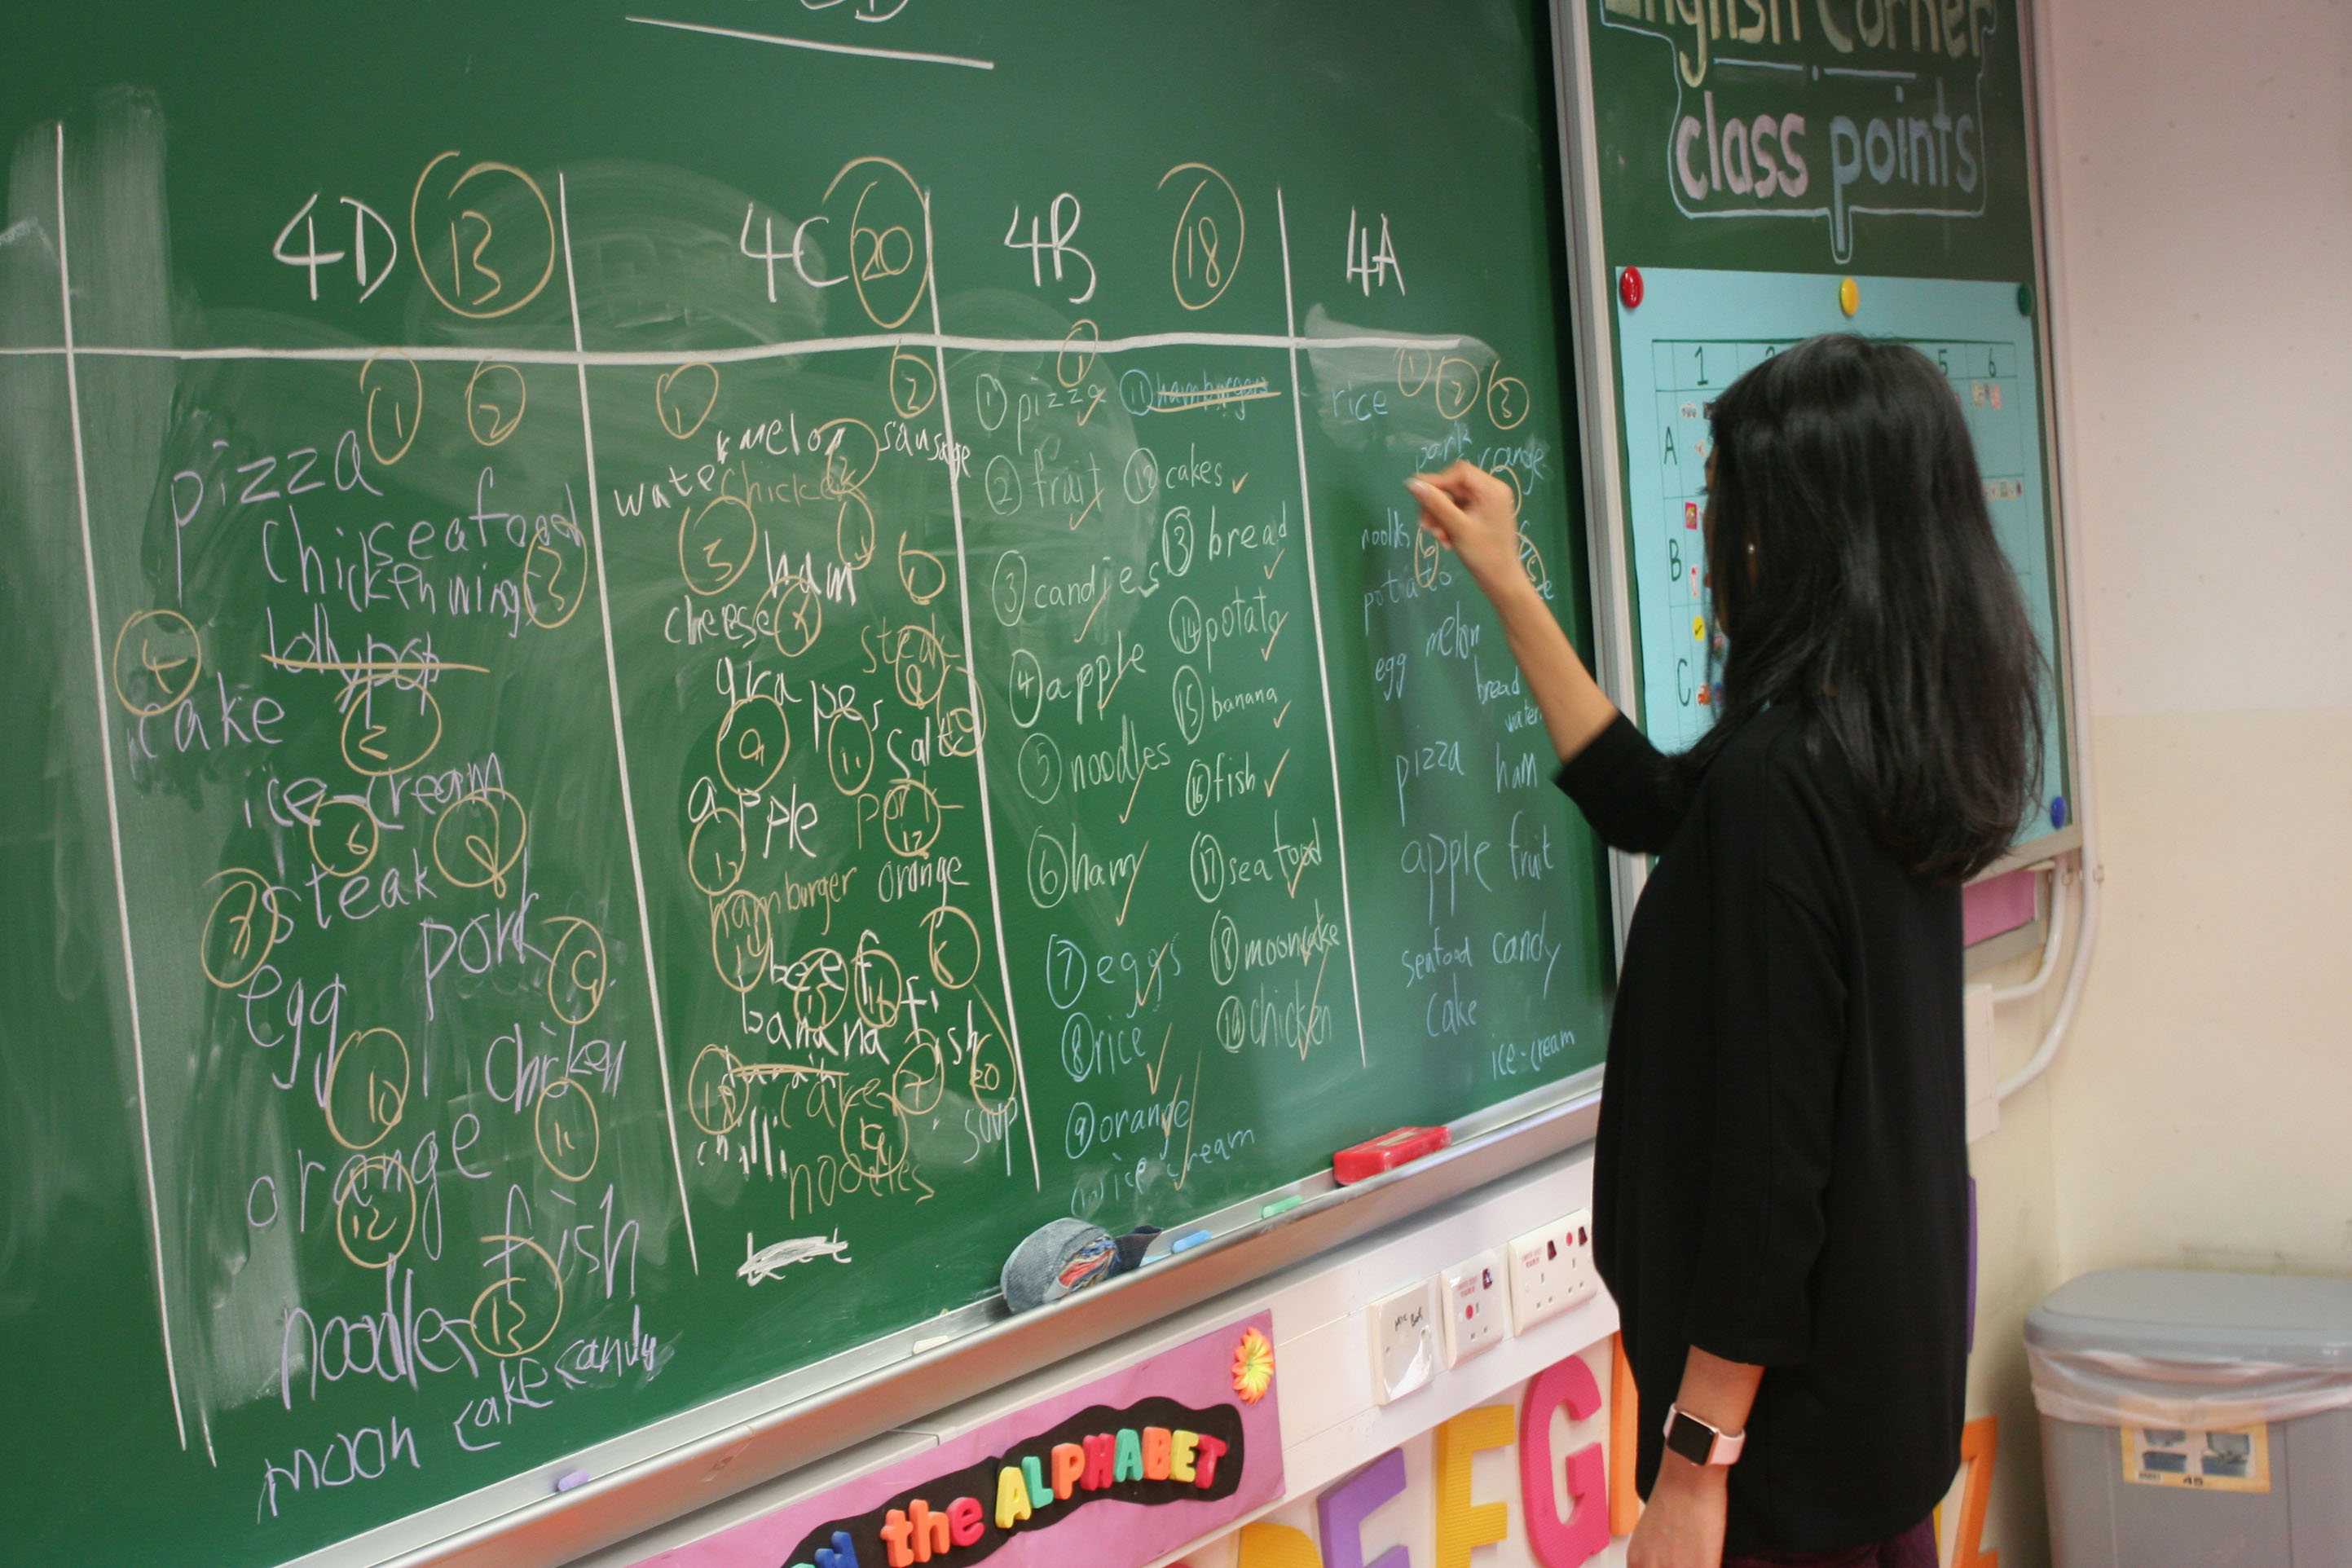 4D 13
4C 20
4B 18
4A
pizza 1 2
seafood
chicken wings 3
lollypop
4
cake 5
ice-cream
6 8
steak
7
pork
egg 9
chicken
10 11
orange
12
fish
noodles 13
moon cake candy
1 2
sausage
water melon
chicken
ham 6
cheese
steak
grapes
salt
9 11
apple pork
hamburger orange
beef
banana fish
cake
chilli
noodles soup
1
① pizza
② fruit
③ candies
④ apple
⑤ noodles
⑥ ham
⑦ eggs
⑧ rice
⑨ orange
⑩ ice cream
⑪ hamburgers
⑫ cakes
⑬ bread
⑭ potato
⑮ banana
⑯ fish
⑰ seafood
⑱ mooncake
⑲ chicken
rice 1 2 3
orange
noodles
egg melon
bread
water
pizza ham
apple fruit
seafood candy
cake
ice-cream
English Corner
class points
1
5 6
A
B
C
the ALPHABET
E F G
45